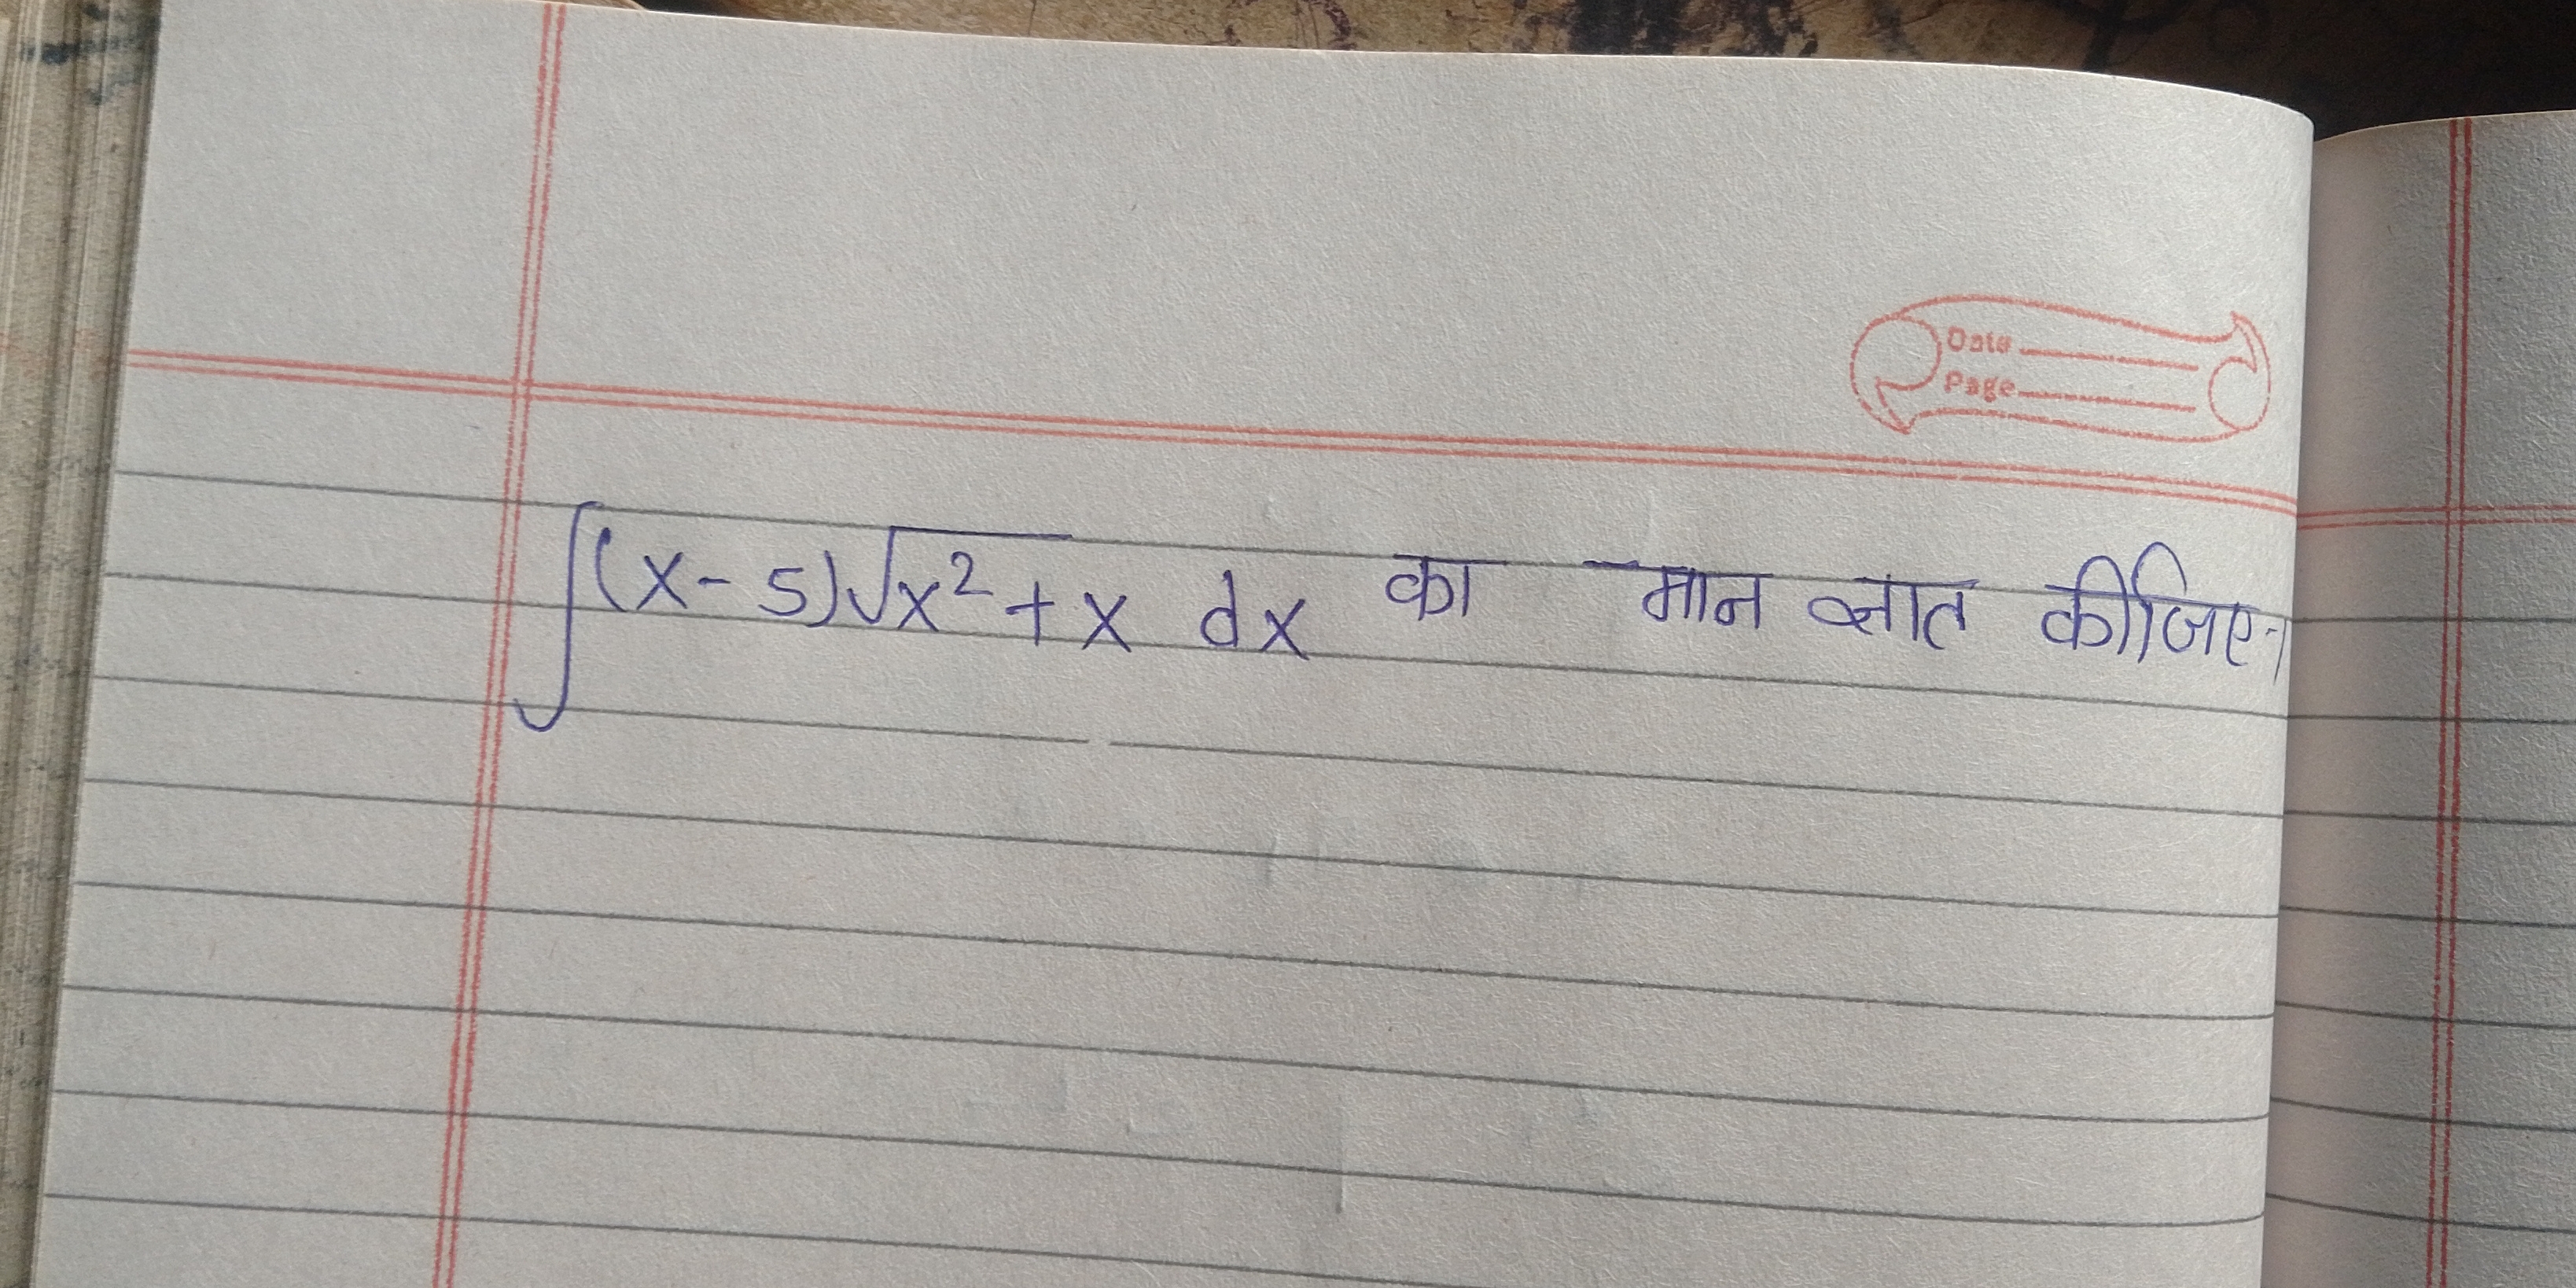 Date
Page
∫(x-5)√x²+x dx का मान ज्ञात कीजिए।